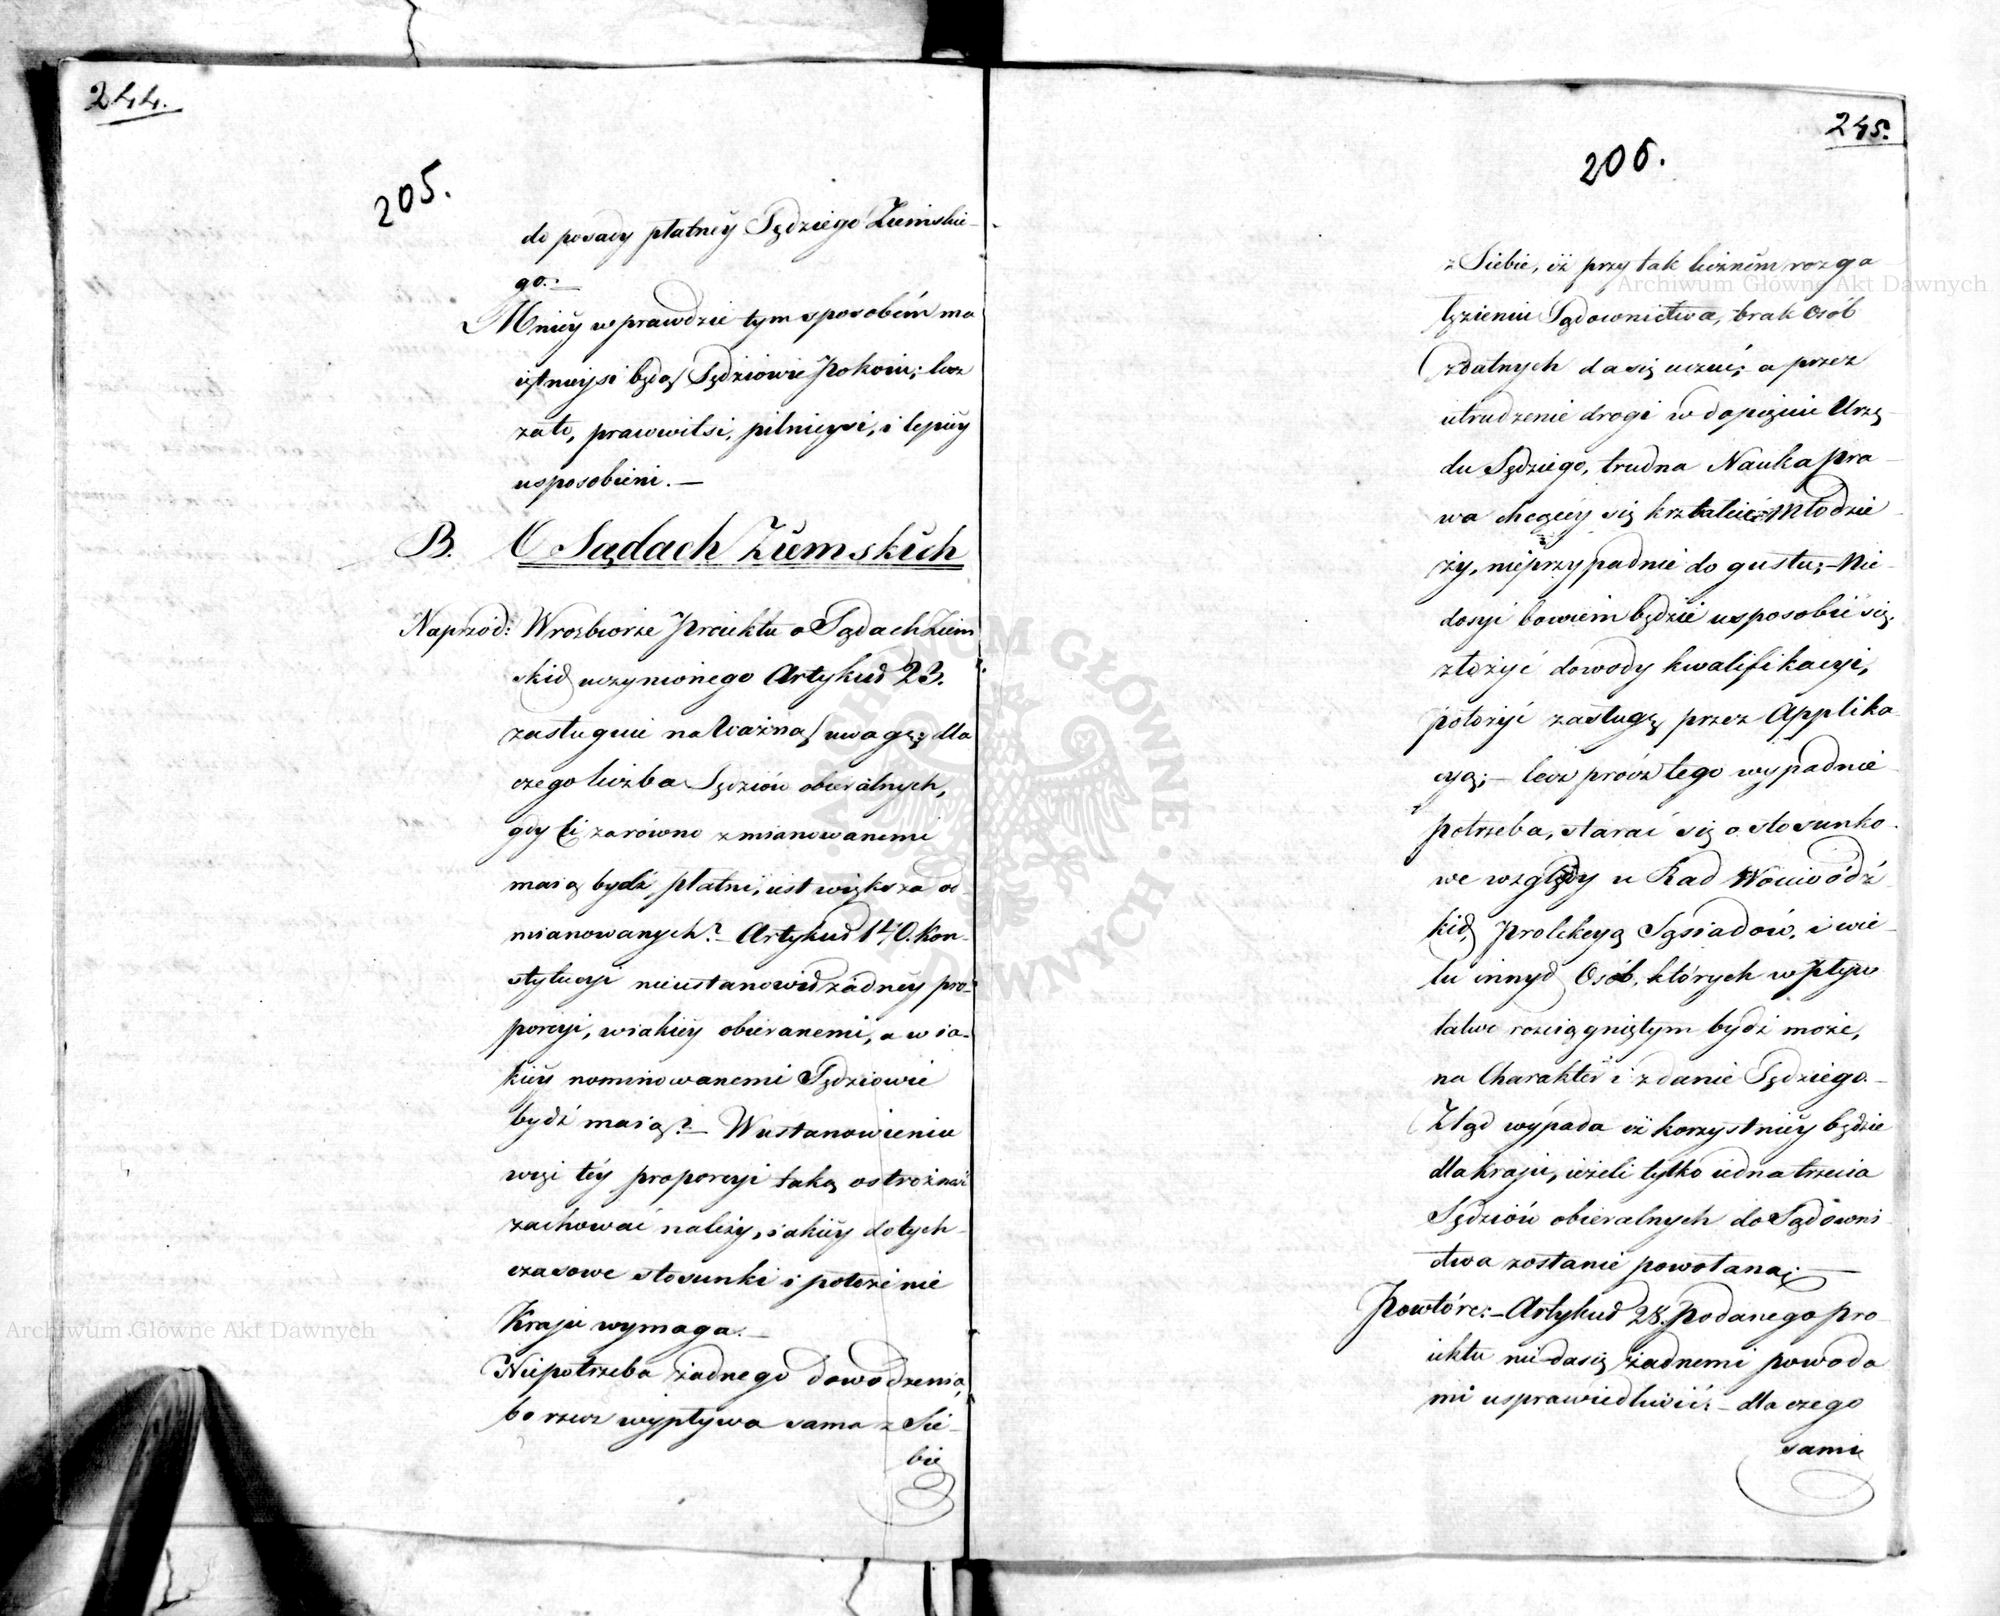 244.
205.
do posady płatney Sędziego Ziemskie-
go.—
Mniey wprawdzie tym sposobém ma
iętnieysi będą Sędziowie Pokoiu; lecz
zato, prawwitsi, pilnieysi, i lepiey
usposobieni.—
B. O Sądach Ziemskich
Naprzód: W rozbiorze Proiektu o Sądach Ziem
skich uczynionego Artykuł 23.
zasługuie na Ważną uwagę; dla
czego liczba Sędziów obieralnych,
gdy ci zarówno z mianowanemi
maią bydź płatni, iest większa od
mianowanych? — Artykuł 140. Kon-
stytucyi nieustanowił żadney pro-
porcyi, w iakiey obieranemi, a w ia-
kiey nominowanemi Sędziowie
bydź maią? — W ustanowieniu
więc téy proporcyi taką ostrożność
zachować należy, iakiey dotych-
czasowe stosunki i położenie
Kraju wymaga.—
Niepotrzeba żadnego dowodzenia,
bo rzecz wypływa sama z Sie-
bie
245.
206.
z Siebie, iż przy tak liczném rozga
łęzieniu Sądownictwa, brak Osób
zdatnych da się uczuć; a przez
utrudzenie drogi w dopięciu Urzę-
du Sędziego, trudna Nauka Pra-
wa chcącéy się kształcić Młodzie-
ży, nieprzypadnie do gustu; — Nie-
dosyć bowiem będzie usposobić się,
złożyć dowody kwalifikacyi,
położyć zasługę przez Applika-
cyą; — lecz prócz tego wypadnie
potrzeba, starać się o stosunko-
we względy u Rad Woiewódz-
kich, Protekcyą Sąsiadów, i wie-
lu innych Osób, których wpływ
łatwo rozciągniętym bydź może,
na Charakter i zdanie Sędziego.—
Ztąd wypada iż korzystniey będzie
dla kraju, ieżeli tylko iedna trzecia
Sędziów obieralnych do Sądowni
ctwa zostanie powołaną; —
Powtóre: — Artykuł 28. Podanego Pro-
iektu nieda się żadnemi powoda
mi usprawiedliwić: — dla czego
sami
Archiwum Główne Akt Dawnych
Archiwum Główne Akt Dawnych
ARCHIWUM GŁÓWNE AKT DAWNYCH